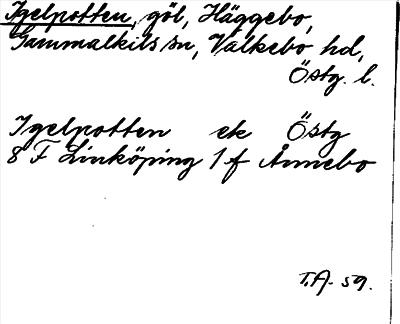 Igelpotten, göl, Häggebo,
Gammalkils sn, Valkebo hd,
Östg. l.
Igelpotten ek Östg
8 F Linköping 1 f Ånnebo
T.A. 59.